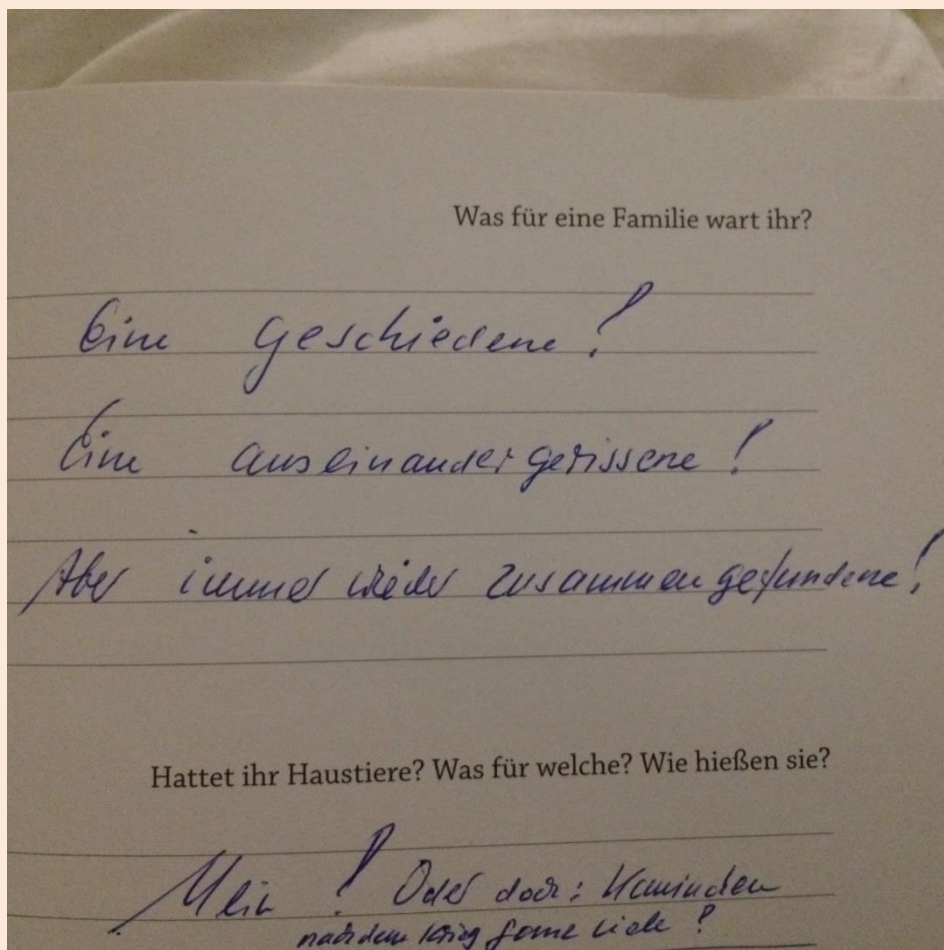 Was für eine Familie wart ihr?
Eine geschiedene!
Eine auseinandergerissene!
Aber immer wieder zusammengefundene!
Hattet ihr Haustiere? Was für welche? Wie hießen sie?
Nein! Oder doch: Kaninchen
nach dem Krieg viele!